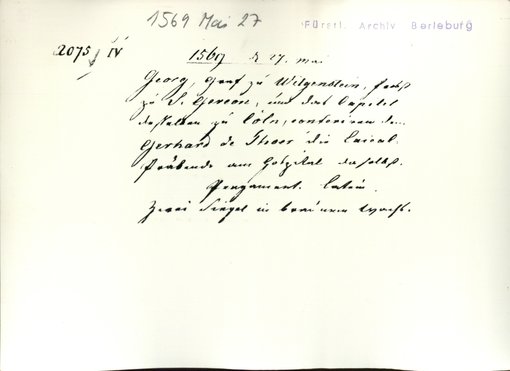 1569 Mai 27
Fürstl. Archiv Berleburg
2075 IV
1569 d 27. Mai
Georg, Graf zu Witgenstein, Probst
zu S. Gereon, und das Capitel
daselbst zu Cöln, conferiren dem
Gerhard de Thoer die Laical-
Präbende am Hospital daselbst.
Pergament. Latein.
Zwei Siegel in braunem Wachs.